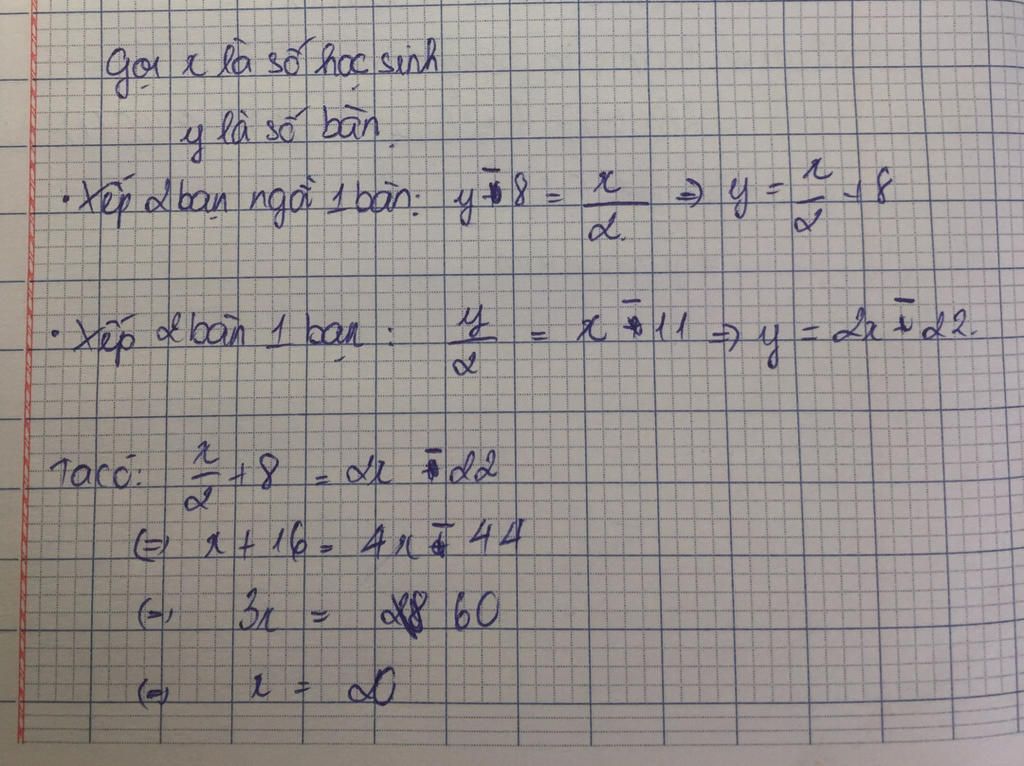 Gọi x là số học sinh
y là số bàn
• Xếp 2 bạn ngồi 1 bàn: y - 8 = x/2 ⇒ y = x/2 + 8
• Xếp 2 bàn 1 bạn : y/2 = x - 11 ⇒ y = 2x - 22.
Ta có: x/2 + 8 = 2x - 22
⇔ x + 16 = 4x - 44
⇔ 3x = 60
⇔ x = 20